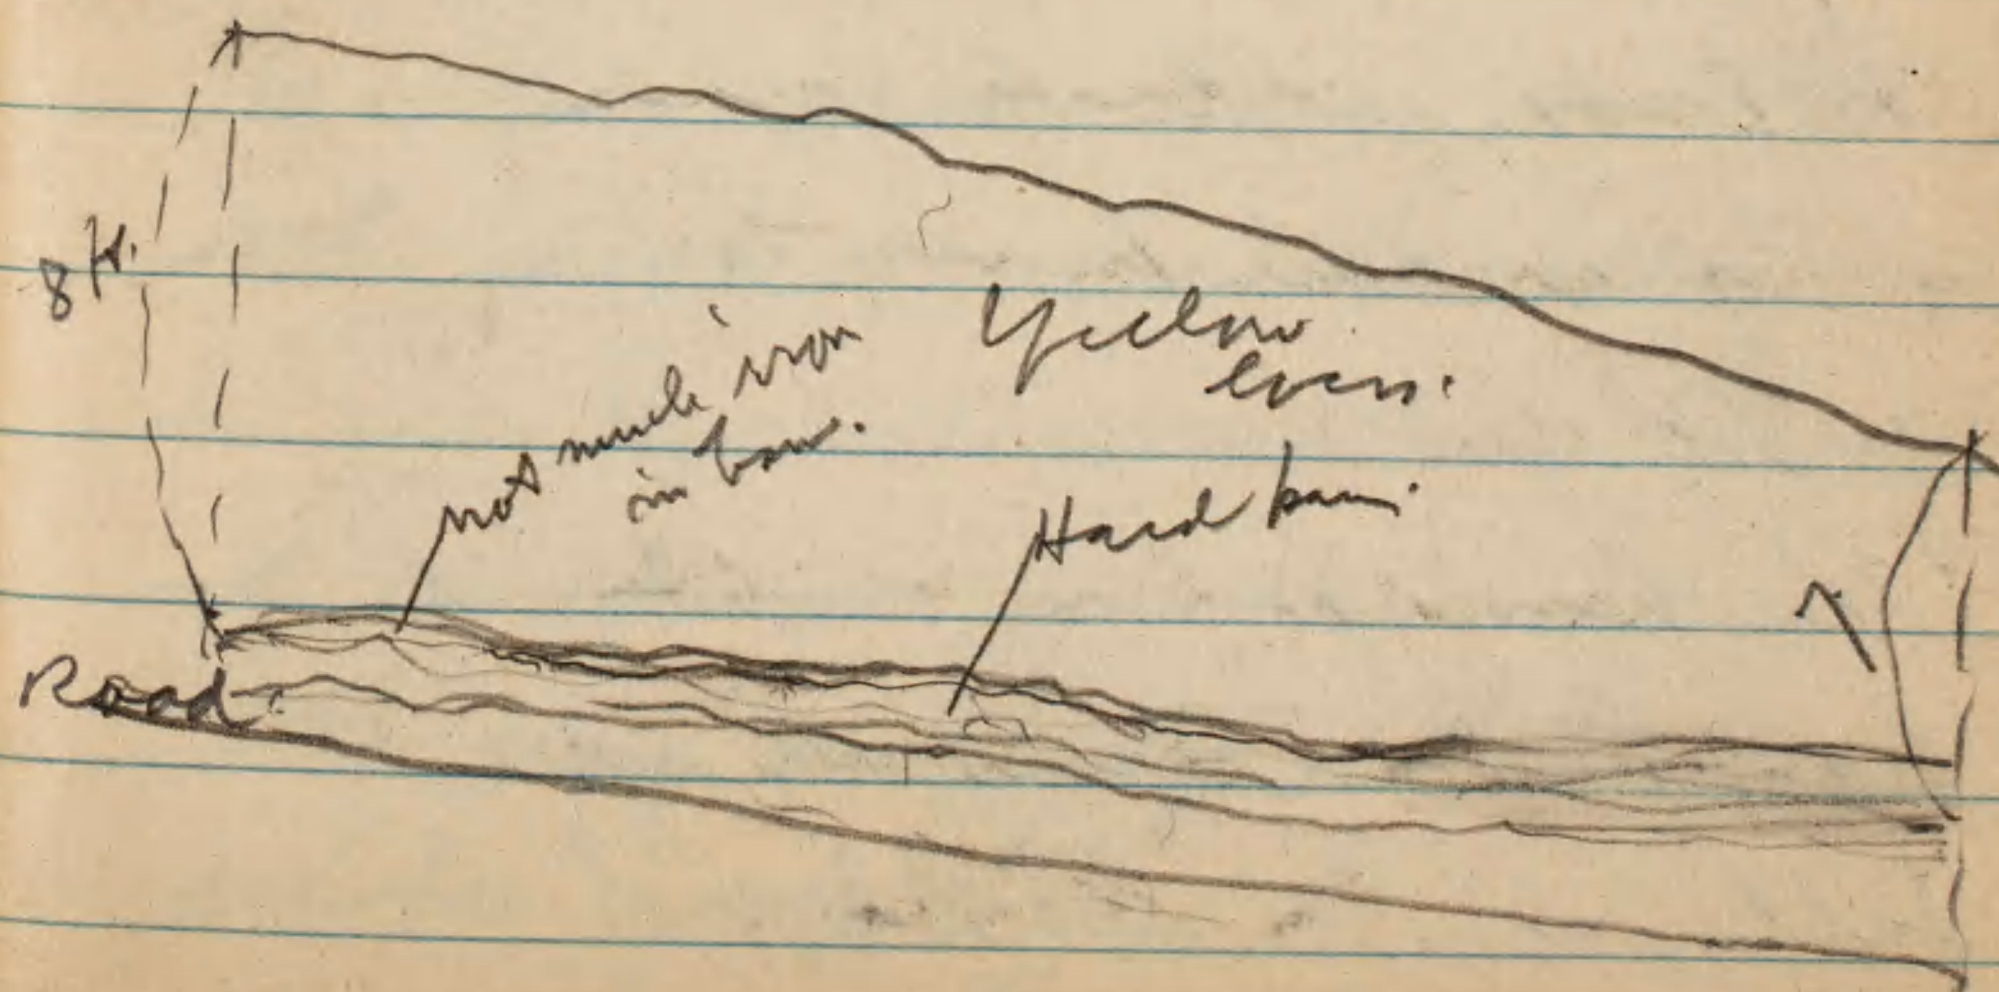 8 ft.
not much iron
in pan.
Yellow
loess.
Hard pan.
7
Road